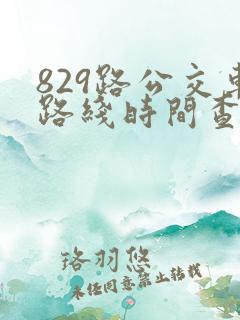 829路公交車
路綫時間查
珞羽悠
未任同意禁止转载